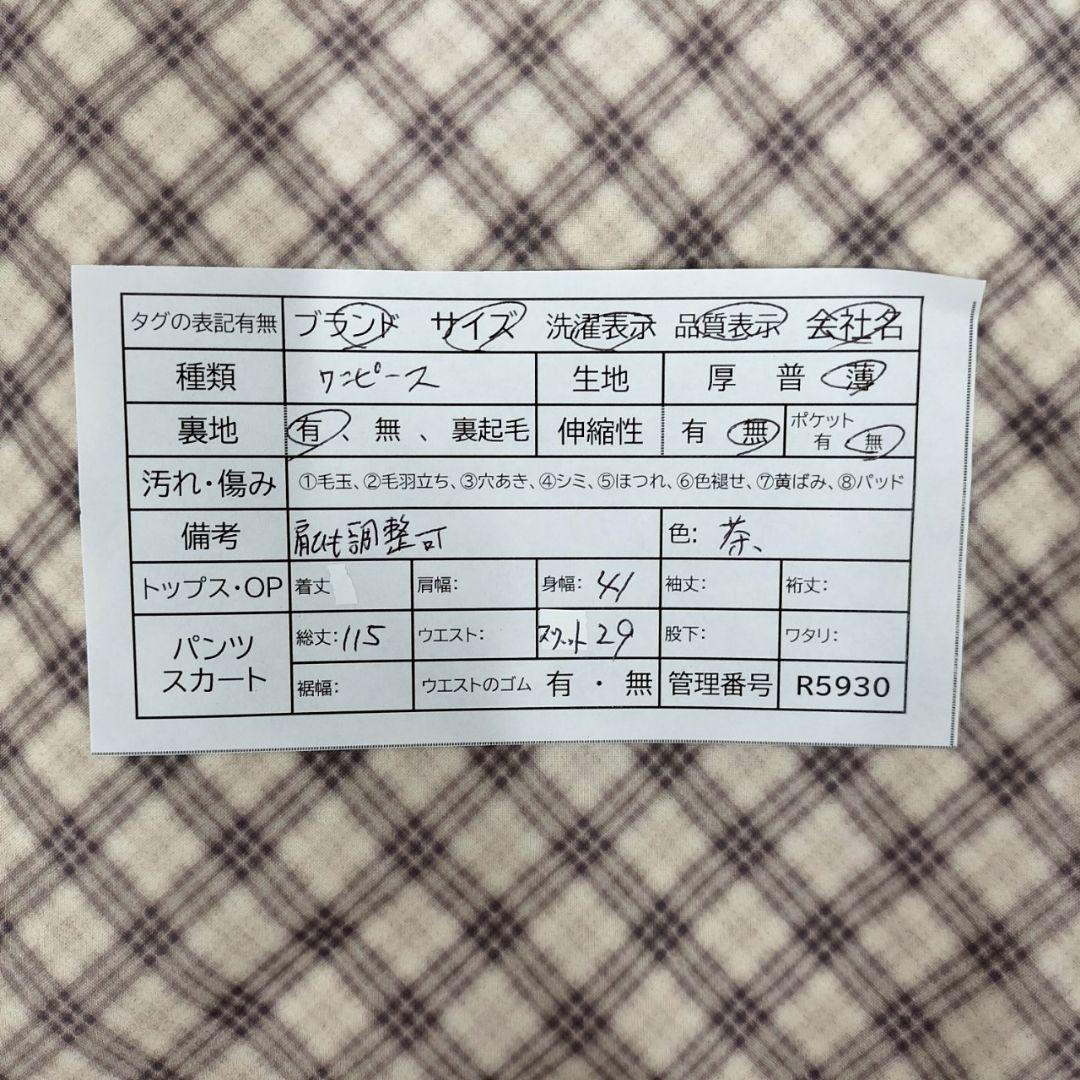 タグの表記有無 ブランド サイズ 洗濯表示 品質表示 会社名
種類 ワンピース 生地 厚 普 薄
裏地 有、無、裏起毛 伸縮性 有 無 ポケット 有 無
汚れ・傷み ①毛玉、②毛羽立ち、③穴あき、④シミ、⑤ほつれ、⑥色褪せ、⑦黄ばみ、⑧パッド
備考 肩ひも調整可 色: 茶、
トップス・OP 着丈 肩幅: 身幅: 41 袖丈: 裄丈:
パンツ スカート 総丈:115 ウエスト: スリット 29 股下: ワタリ:
裾幅: ウエストのゴム 有・無 管理番号 R5930